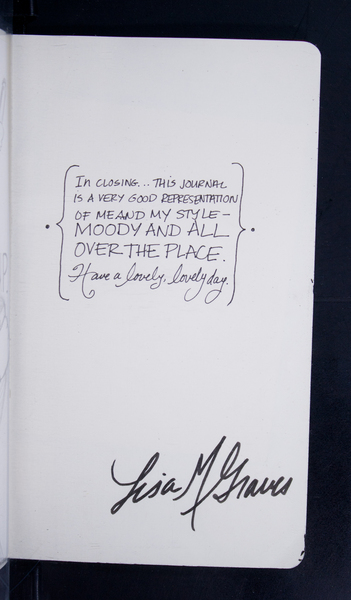 In CLOSING... THIS JOURNAL
IS A VERY GOOD REPRESENTATION
OF ME AND MY STYLE –
MOODY AND ALL
OVER THE PLACE.
Have a lovely, lovely day.
Lisa M Graves